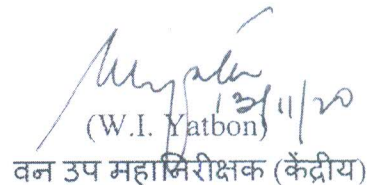 13/11/20
(W.I. Yatbon)
वन उप महानिरीक्षक (केंद्रीय)